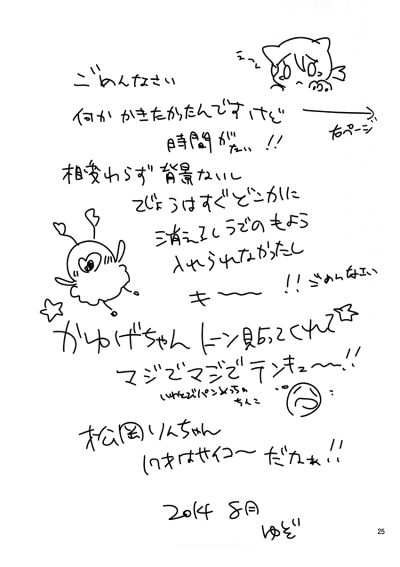 えーん
ごめんなさい
何か かきたかったんですけど
右ページ
時間がない!!
相変わらず 背景ないし
びょうはすぐどこかに
消えるしうでのもよう
入れられなかったし
キーー!!ごめんなさい
かゆげちゃん に貼ってくれて
マジでマジで テンキュー〜!!
松岡りんちゃん
17才はサイコ〜 だなぁ!!
2014 8月
ゆぞ
25